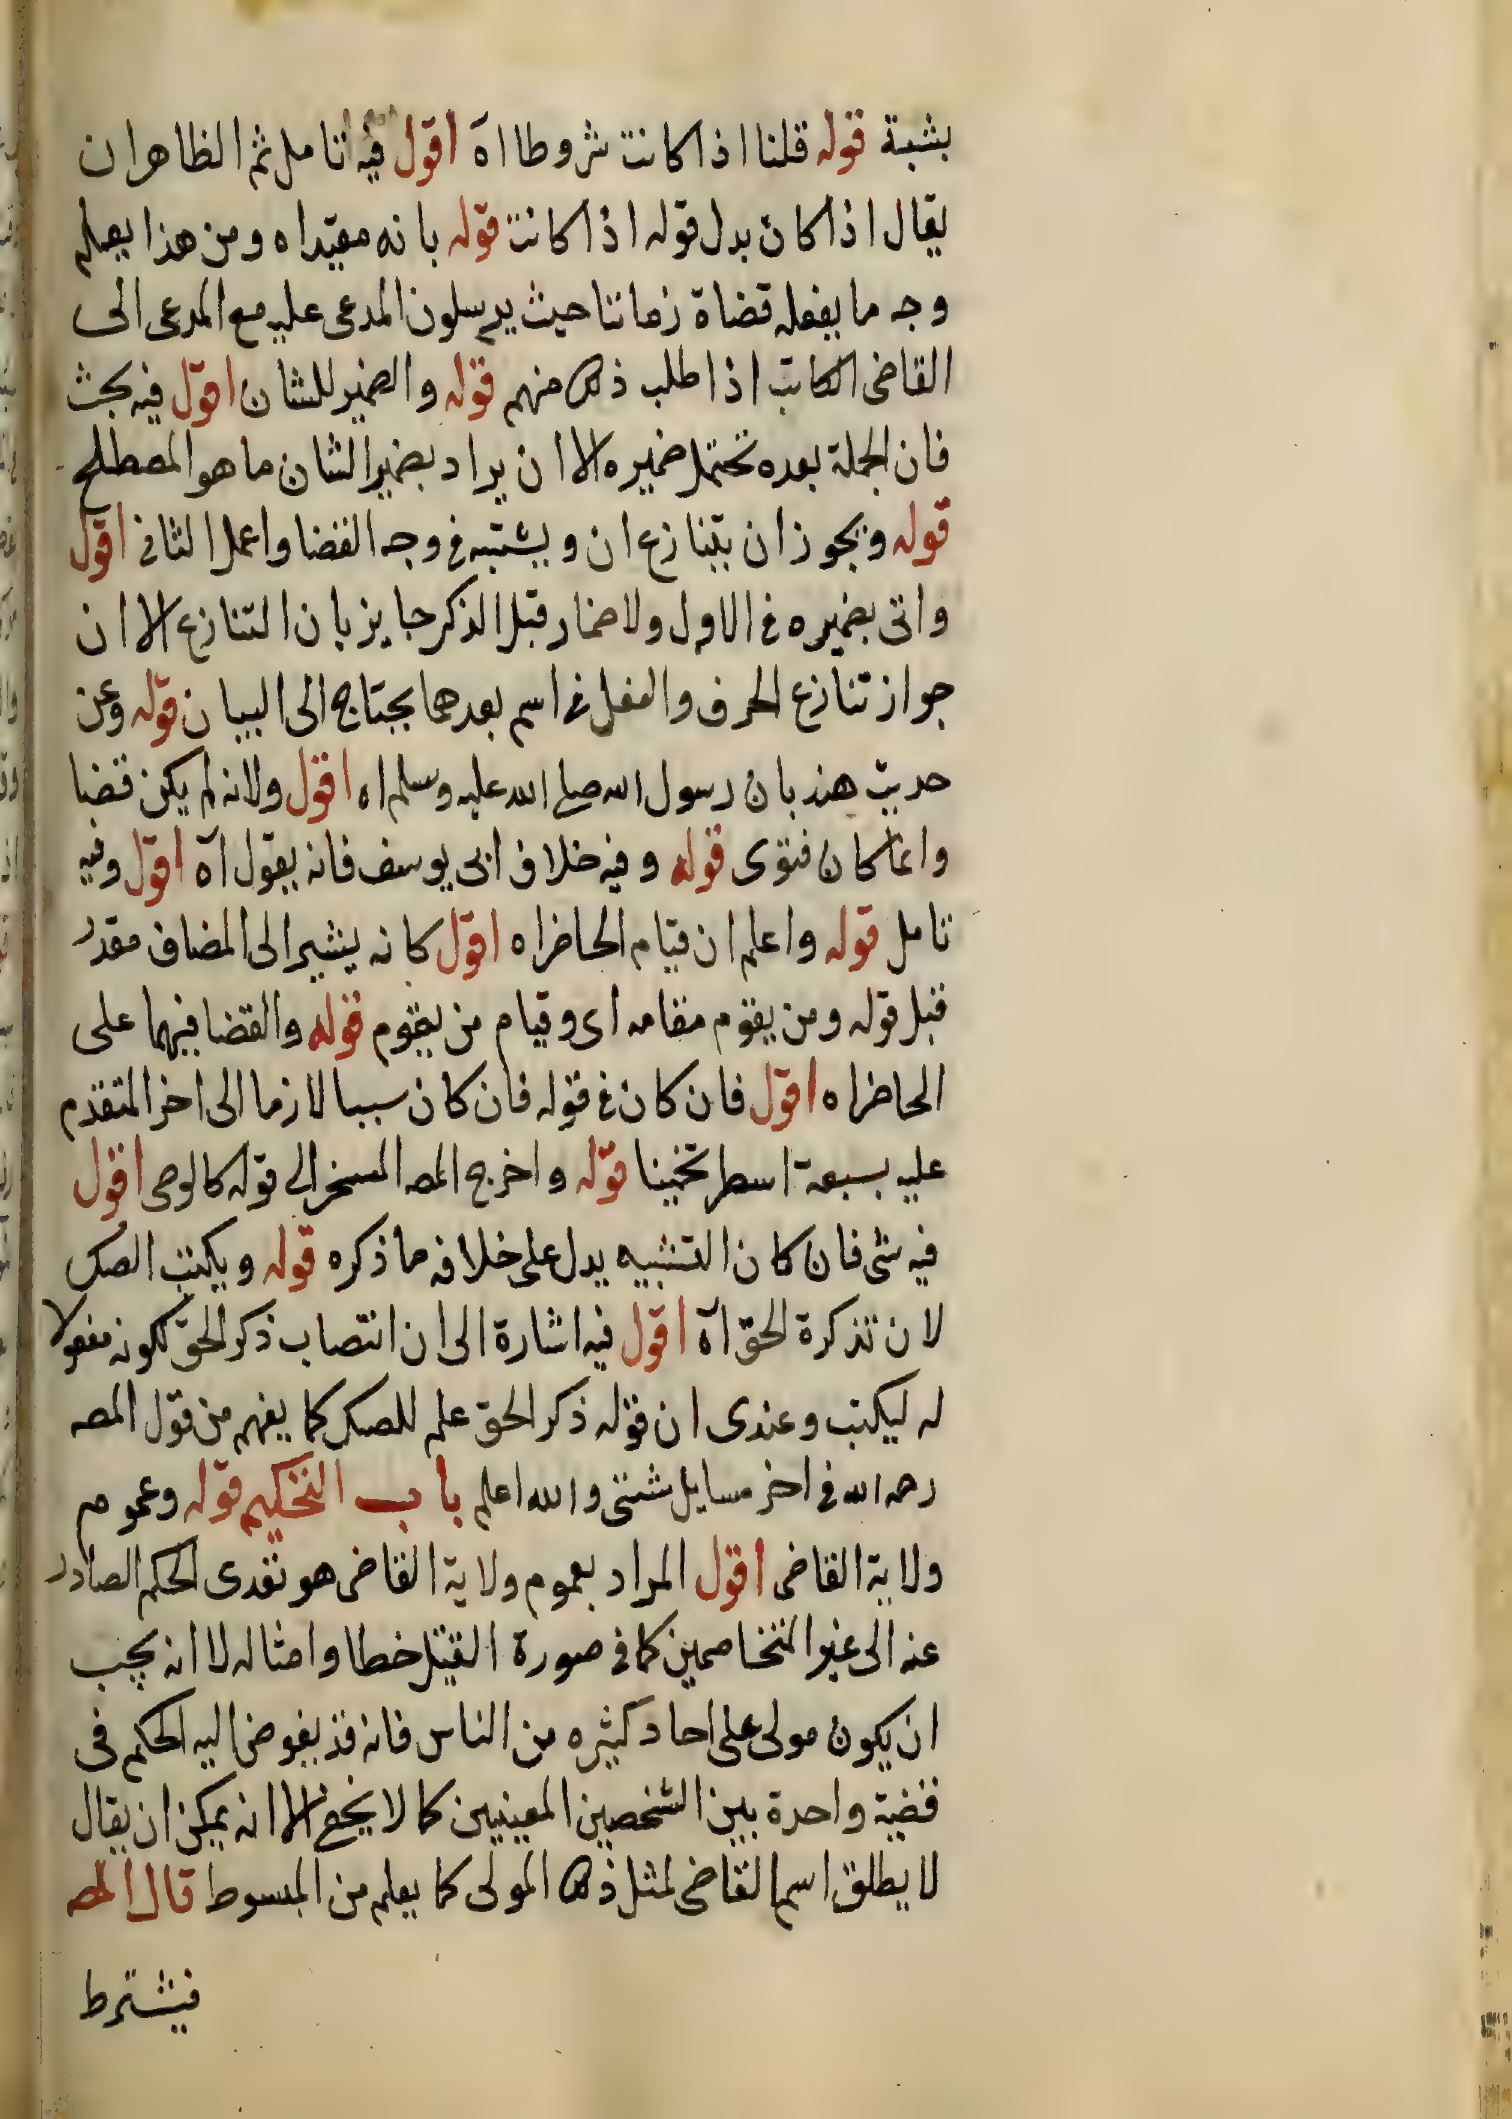 بشبة قوله قلنا اذا كانت شروطا اه اقول فيه تامل ثم الظاهر ان
يقال اذا كان بدل قوله اذا كانت قوله بانه مقيد اه ومن هذا يعلم
وجه ما يفعله قضاة زماننا حيث يرسلون المدعى عليه مع المدعى الى
القاضى الكاتب اذا طلب ذلك منهم قوله والضمير للشان اقول فيه بحث
فان الجملة بعده تحتمل ضميره الا ان يراد بضمير الشان ما هو المصطلح
قوله ويجوز ان يتنازع ان ويشتبه فى وجه القضا واعمل الثانى اقول
واتى بضميره فى الاول ولاضمار قبل الذكر جايز بان التنازع الا ان
جواز تنازع الحرف والفعل فى اسم بعدهما يحتاج الى البيان قوله وعن
حديث هند بان رسول الله صلى الله عليه وسلم اه اقول ولانه لم يكن قضا
وانما كان فتوى قوله وفيه خلاف ابى يوسف فانه يقول اه اقول وفيه
تامل قوله واعلم ان قيام الحاضر اه اقول كانه يشير الى المضاف مقدر
قبل قوله ومن يقوم مقامه اى وقيام من يقوم قوله والقضا فيهما على
الحاضر اه اقول فان كان فى قوله فان كان سببا لازما الى اخر المتقدم
عليه بسبعة اسطر تخمينا قوله واخرج المص المسخر الى قوله كالوصى اقول
فيه شئ فان كان التشبيه يدل على خلافه ما ذكره قوله ويكتب الصك
لان تذكرة الحق اه اقول فيه اشارة الى ان انتصاب ذكر الحق لكونه مفعولا
له ليكتب وعندى ان قوله ذكر الحق علم للصك كما يفهم من قول المصه
رحمه الله فى اخر مسايل شتى والله اعلم باب التحكيم قوله وعموم
ولاية القاضى اقول المراد بعموم ولاية القاضى هو تعدى الحكم الصادر
عنه الى غير المتخاصمين كما فى صورة القتيل خطا وامثاله لا انه يجب
ان يكون مولى على احاد كثيره من الناس فانه قد يفوض اليه الحكم فى
قضية واحدة بين الشخصين المعينين كما لا يخفى الا انه يمكن ان يقال
لا يطلق اسم القاضى لمثل ذلك المولى كما يعلم من المبسوط قال المصه
فيشترط